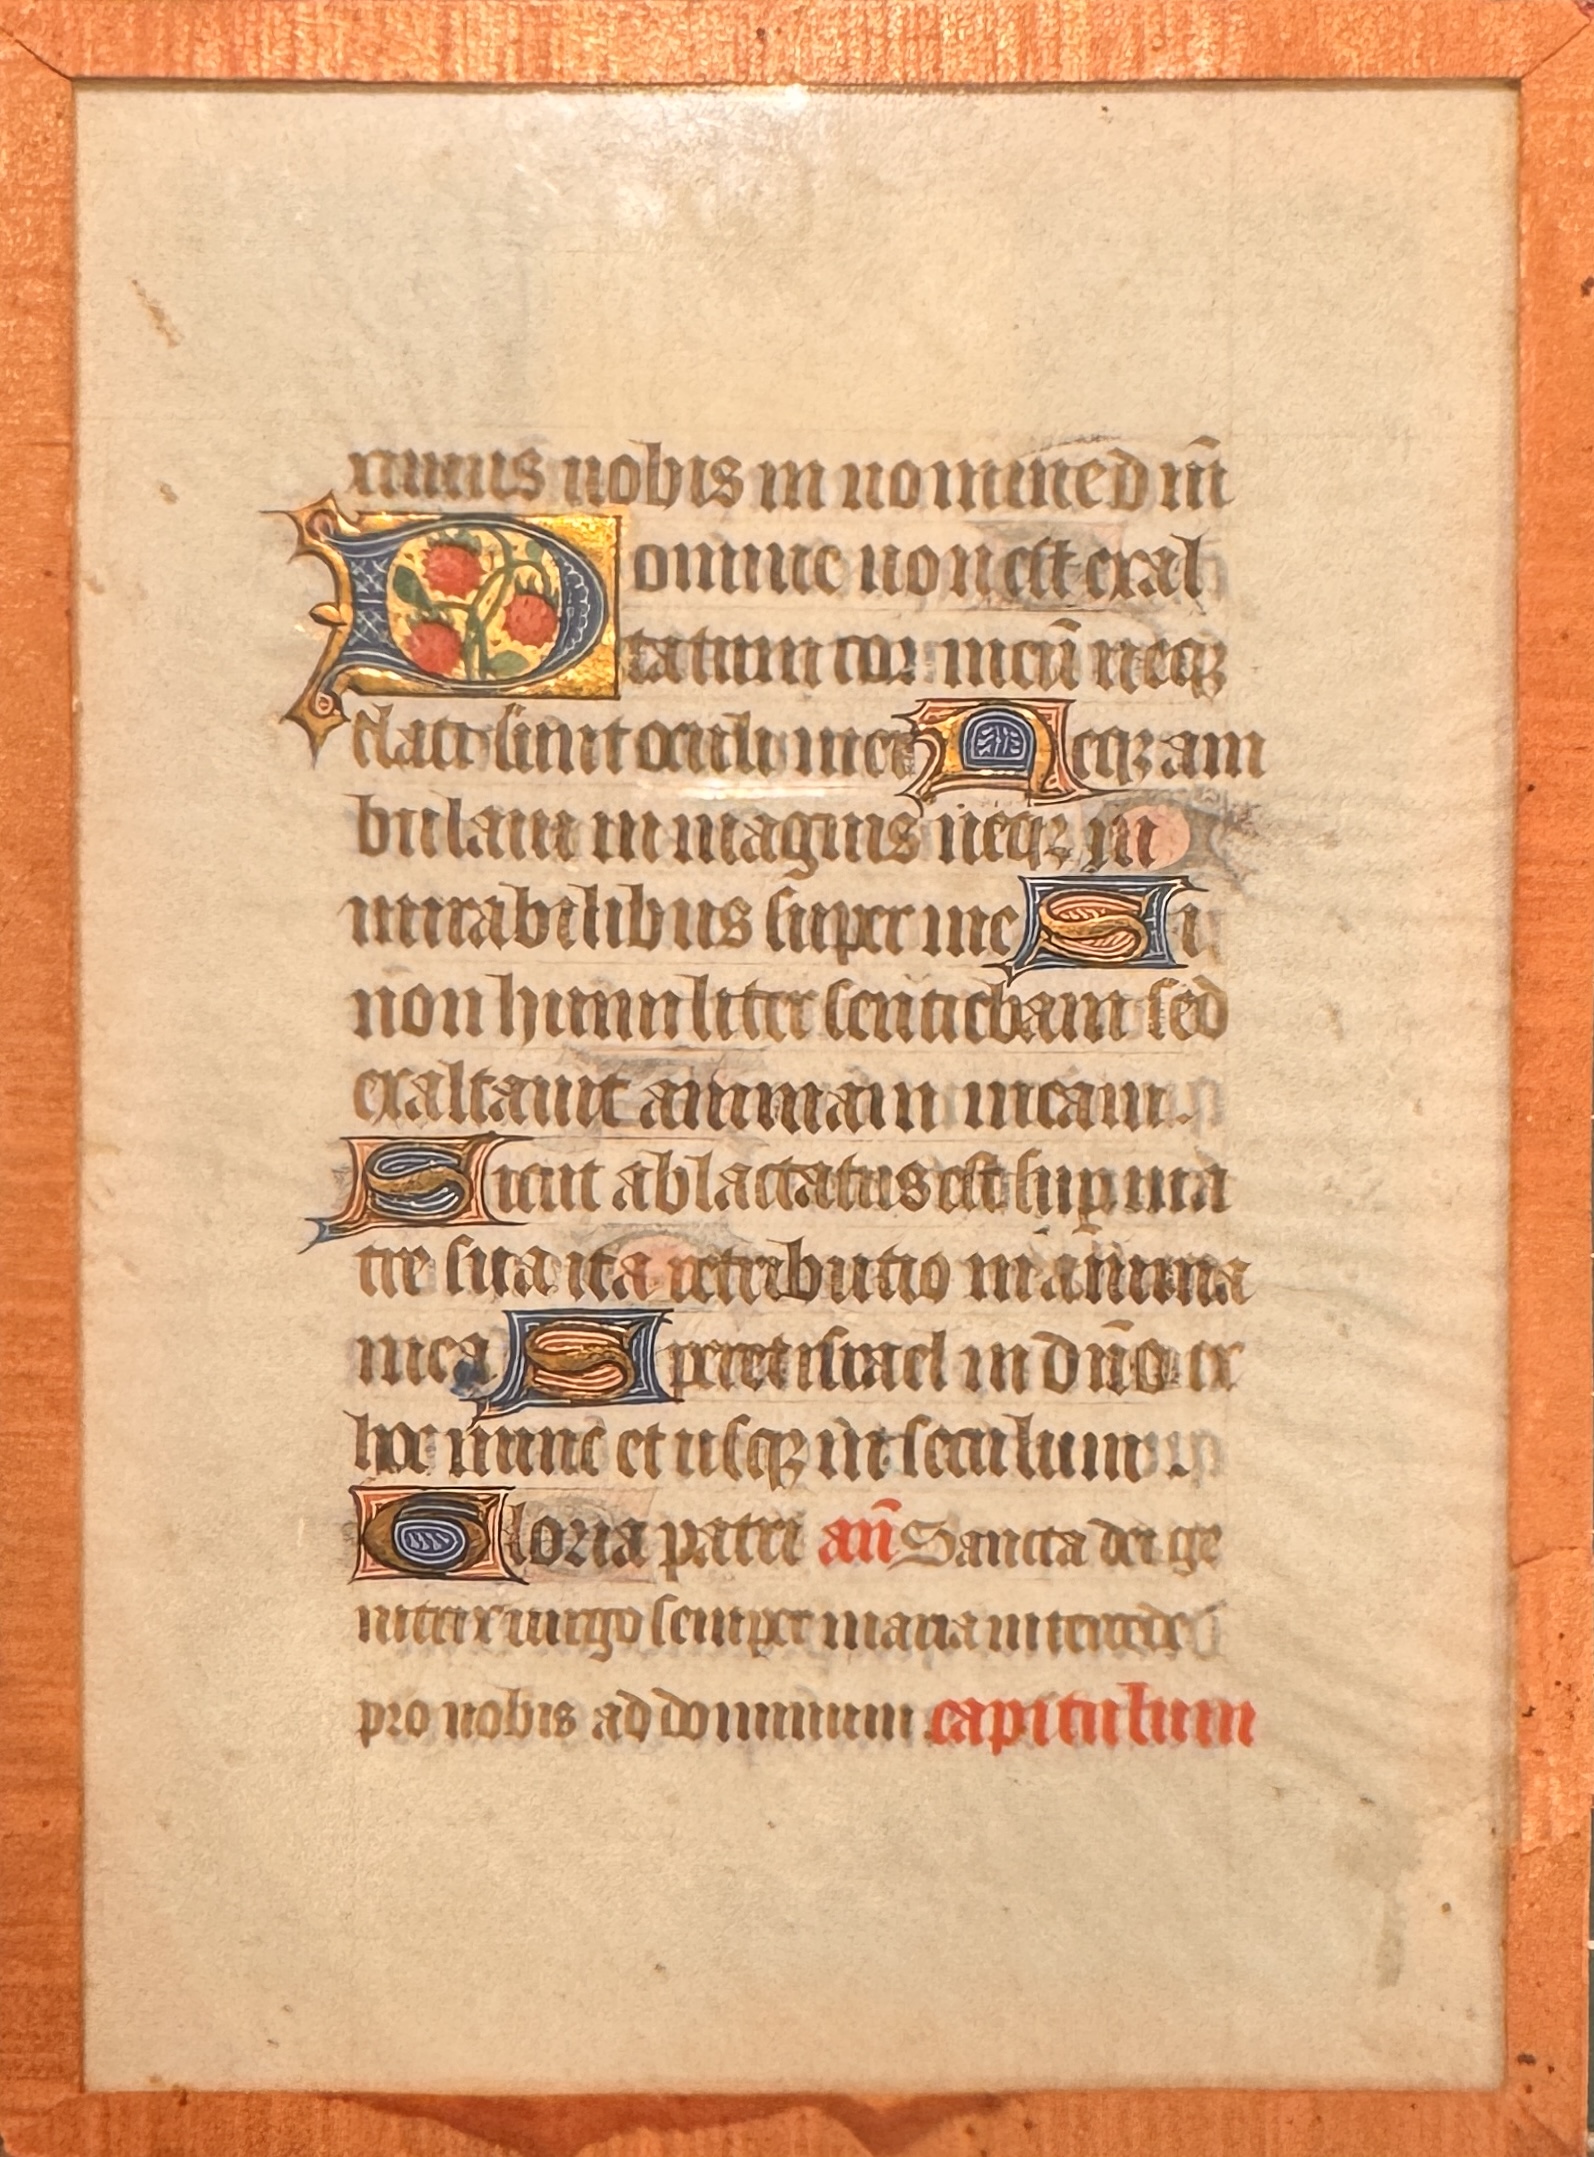 ximus vobis in nomine dn̄i
Domine non est exal
tatum cor meū neqꝫ
elati sunt oculi mei Neqꝫ am
bulaui in magnis neqꝫ in
mirabilibus super me Si
non humiliter sentiebam sed
exaltauit animam meam.
Sicut ablactatus est sup ma
tre sua ita retributio in anima
mea Speret israel in dn̄o ex
hoc nunc et usqꝫ in seculum.
Gloria patri an̄ Sancta dei ge
nitrix uirgo semper maria intercede
pro nobis ad dominum capitulum